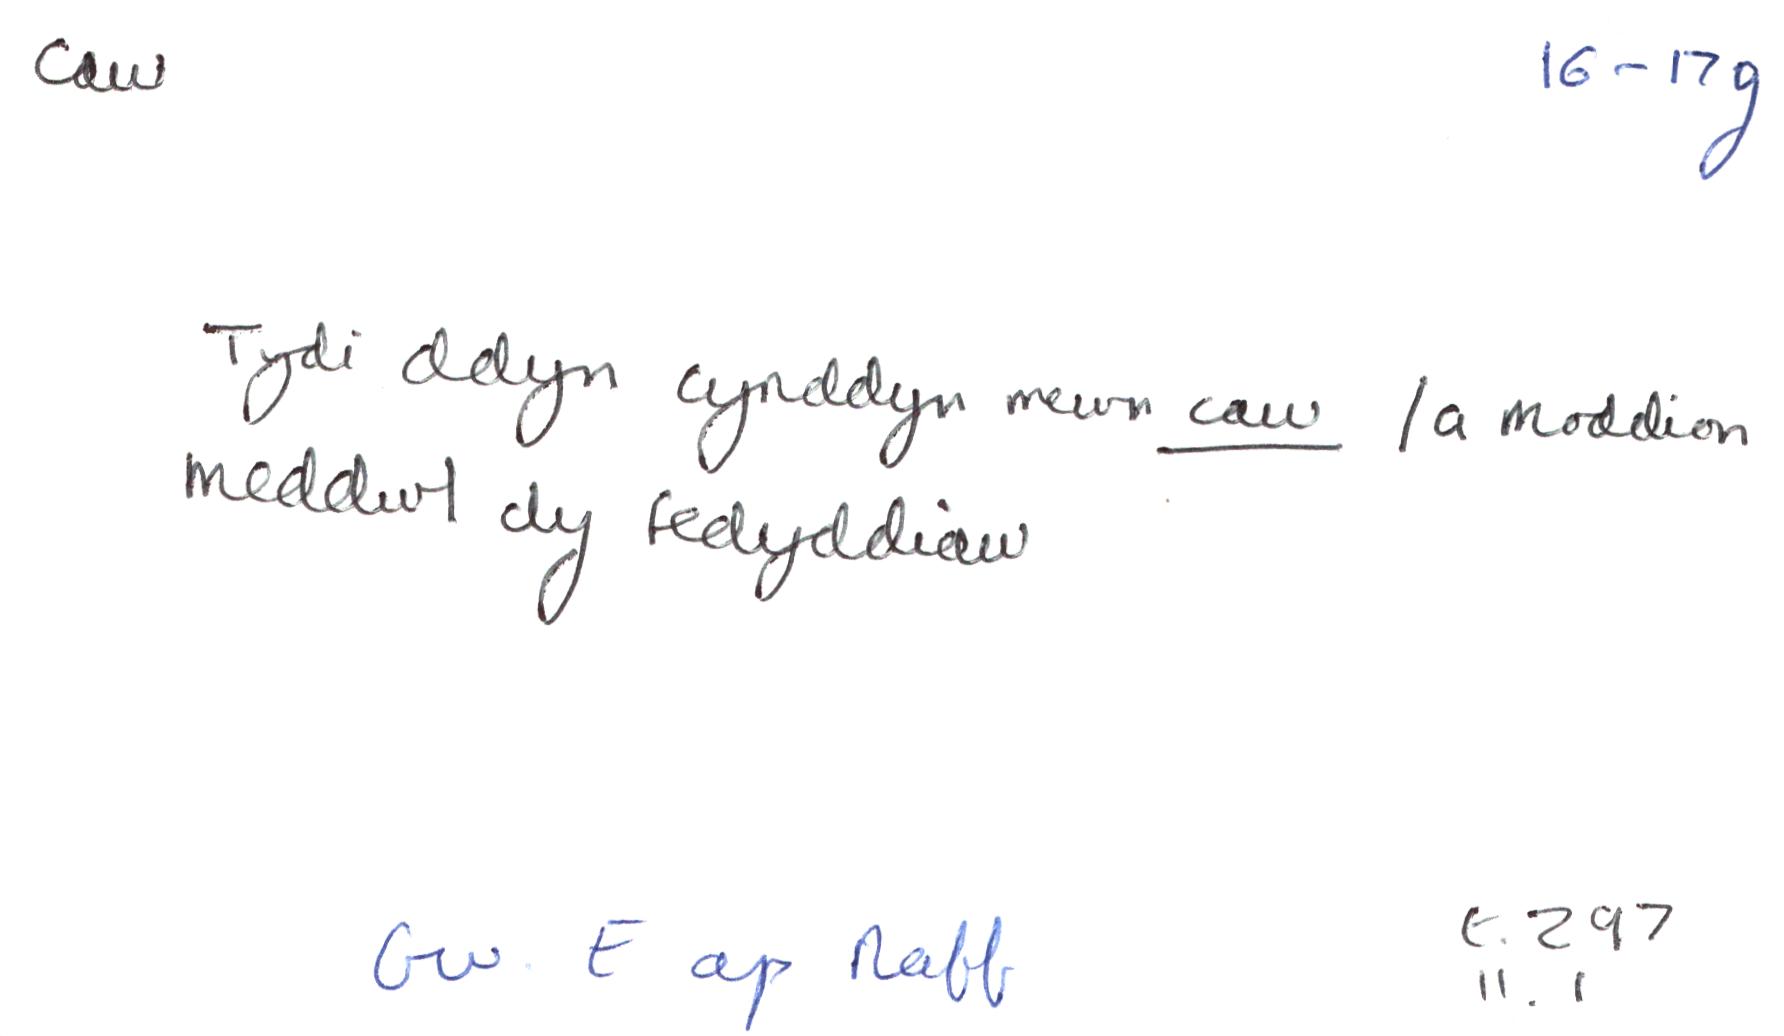 caw 16-17g
Tydi ddyn cynddyn mewn caw / a moddion
meddwl dy fedyddiaw
Gw. E ap Raff t. 297
11. 1